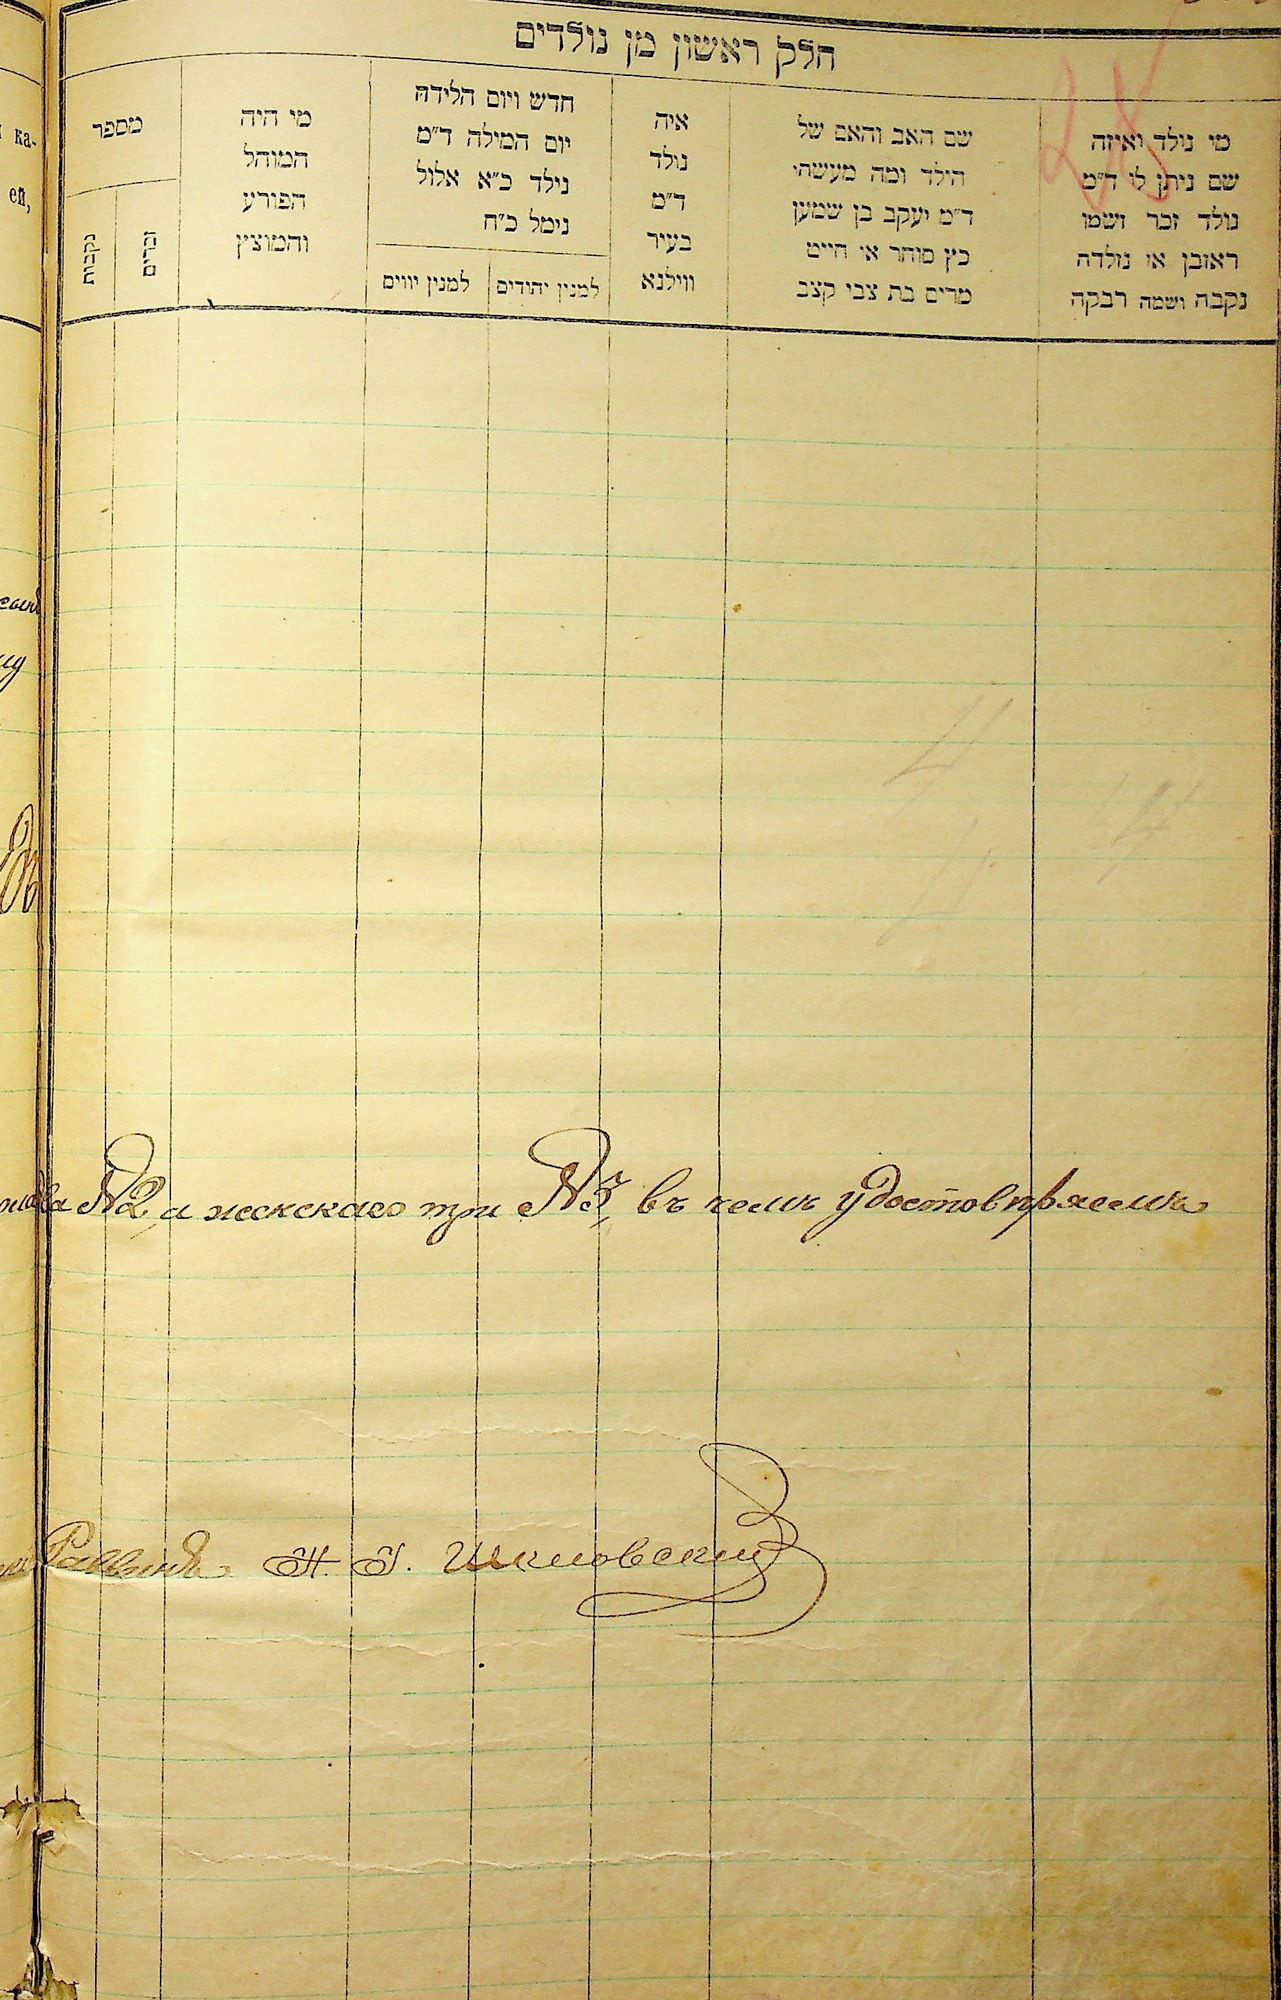 חלק ראשון מן נולדים
מי נולד ואיזה
שם ניתן לו ד"מ
נולד זכר ושמו
ראובן או נולדה
נקבה ושמה רבקה
שם האב והאם של
הילד ומה מעשהו
ד"מ יעקב בן שמעון
כץ סוחר או חייט
מרים בת צבי קצב
איה
נולד
ד"מ
בעיר
ווילנא
חדש ויום הלידה
יום המילה ד"מ
נילד כ"א אלול
נימל כ"ח
למנין יהודים
למנין יווים
מי היה
המוהל
הפורע
והמוצץ
מספר
זכרים
נקבות
ка-
ей,
два №2, и женскаго три №3, въ чемъ удостовѣряемъ
Раввинъ Шкловскій